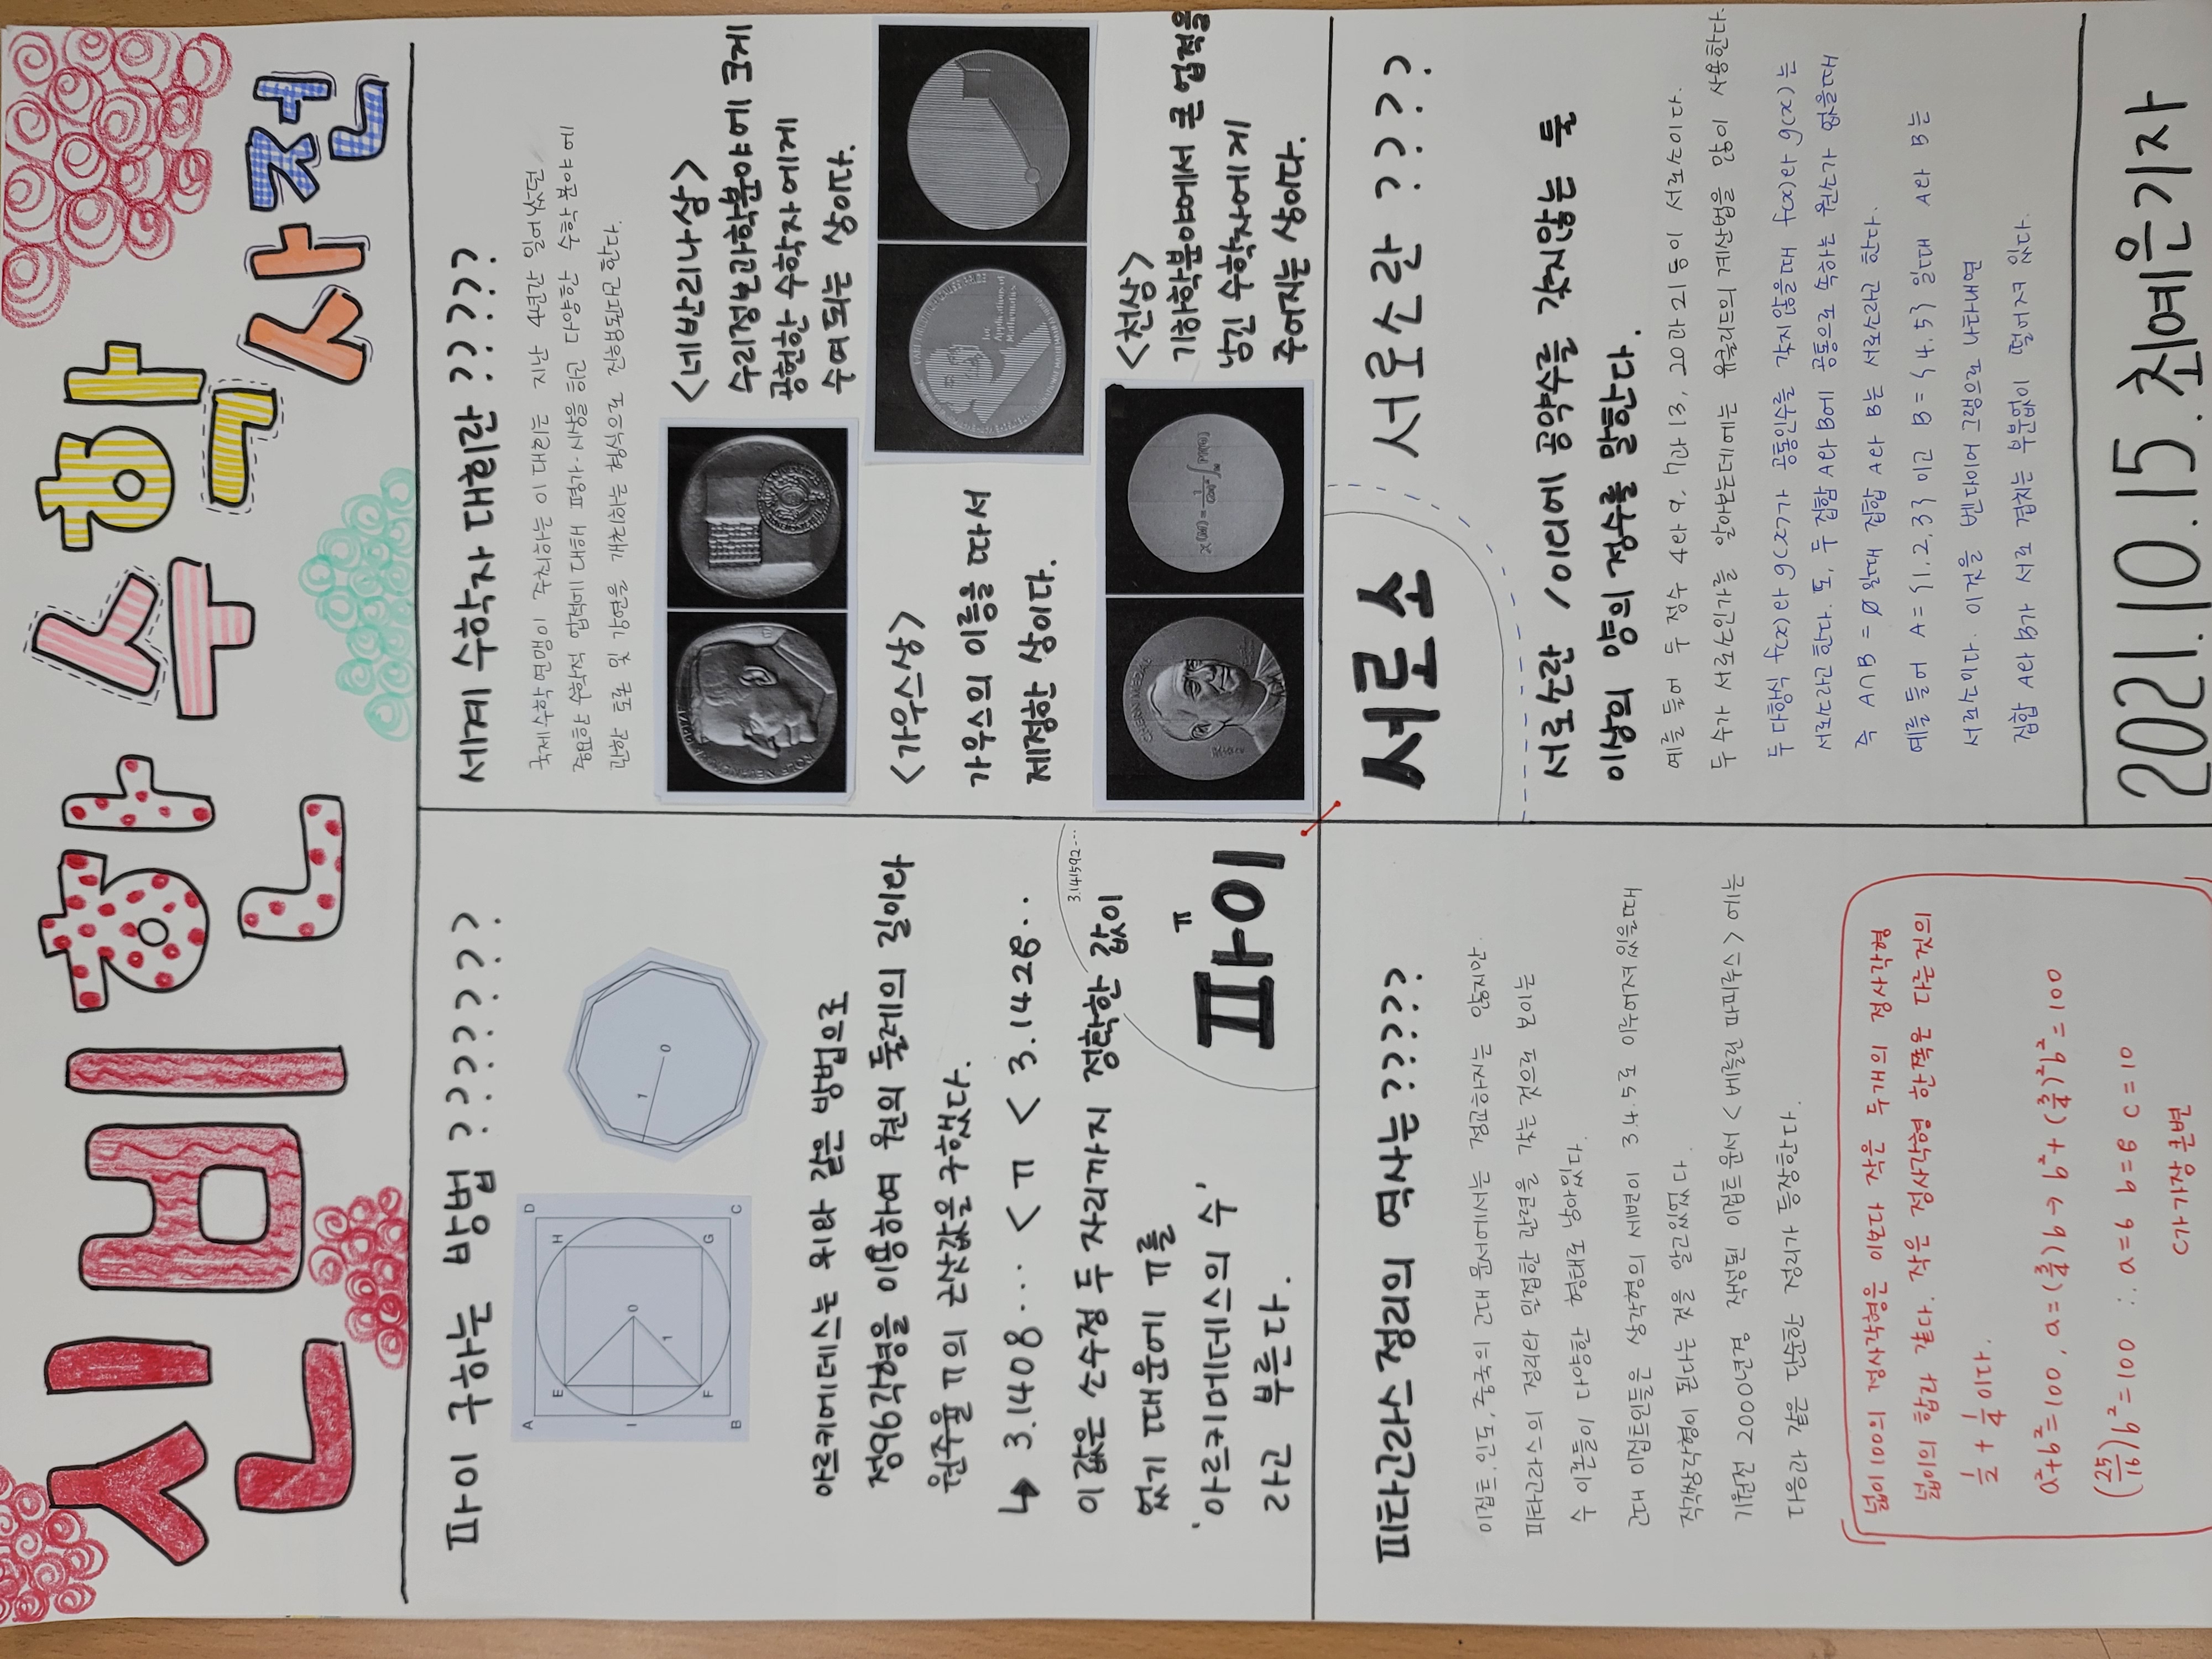 신비한 수학 사전
파이 구하는 방법 ?????
A
D
H
E
I
O
1
F
G
B
C
O
1
아르키메데스는 위와 같은 방법으로
정96각형을 이용하여 원의 둘레의 길이와
원주율 π의 근삿값을 구했다.
↳ 3.1408... < π < 3.1428..
이 값은 소수점 두 자리까지 정확한 값이
었기 때문에 π를
'아르키메데스의 수'
라고 부른다.
3.141592...
π
파이
세계 수학자대회란 ?????
국제수학연맹이 주최하는 이 대회는 지난 4년간 있었던
중요한 수학적 업적에 대해 평가·시상을 하고 다양한 수학 분야에
관한 토론 및 강연을 개최하는 형식으로 진행되고 한다.
<네반리나상>
수리정보과학분야에 크게
공헌한 수학자에게
수여되는 상이다.
<가우스상>
가우스의 이름을 따서
제정한 상이다.
CARL FRIEDRICH GAUSS PRIZE
for Applications of Mathematics
<천상>
기하학분야에서 큰 업적을
남긴 수학자에게
주어지는 상이다.
CHERN MEDAL
피타고라스 정리의 역사는?????
이집트, 인도, 중국의 고대 문서에서는 정교하지는 않지만
피타고라스의 정리와 밀접한 관련을 갖는 것으로 보이는
수 이론이 다양한 형태로 남아있다.
고대 이집트인들은 삼각형의 세변이 3.4.5로 이루어져있을때
직각삼각형이 된다는 것을 알고있었다.
기원전 2000년 경 작성된 이집트 문서 <베를린 파피루스> 에는
다음과 같은 단순한 정리가 등장한다.
넓이 100의 정사각형은 이보다 작은 두개의 정사각형
넓이의 합과 같다. 작은 정사각형 한쪽은 다른 것의
½ + ¼ 이다.
a²+b²=100, a=(¾)b → b²+(¾)²b²=100
(25/16)b²=100 ∴ a=6 b=8 c=10
c가 가장 큰 변
서로소
서로소란 ?????
서로소란 / 0이 아닌 공약수를 갖지않는 둘
이상의 양의 정수를 말한다.
예를 들어 두 정수 4와 9, 7과 13, 20과 21 등이 서로소이다.
두 수가 서로소인가를 알아보는데에는 유클리드의 계산법을 많이 사용한다.
두 다항식 f(x)와 g(x)가 공통인수를 갖지 않을때 f(x)와 g(x)는
서로소라고 한다. 또, 두 집합 A와 B에 공통으로 속하는 원소가 없을때
즉 A∩B = ∅ 일때 집합 A와 B는 서로소라고 한다.
예를 들어 A={1.2.3} 이고 B={4.5} 일때 A와 B는
서로소이다. 이것을 벤다이어그램으로 나타내면
집합 A와 B가 서로 겹치는 부분없이 떨어져 있다.
2021.10.15. 최예은기자